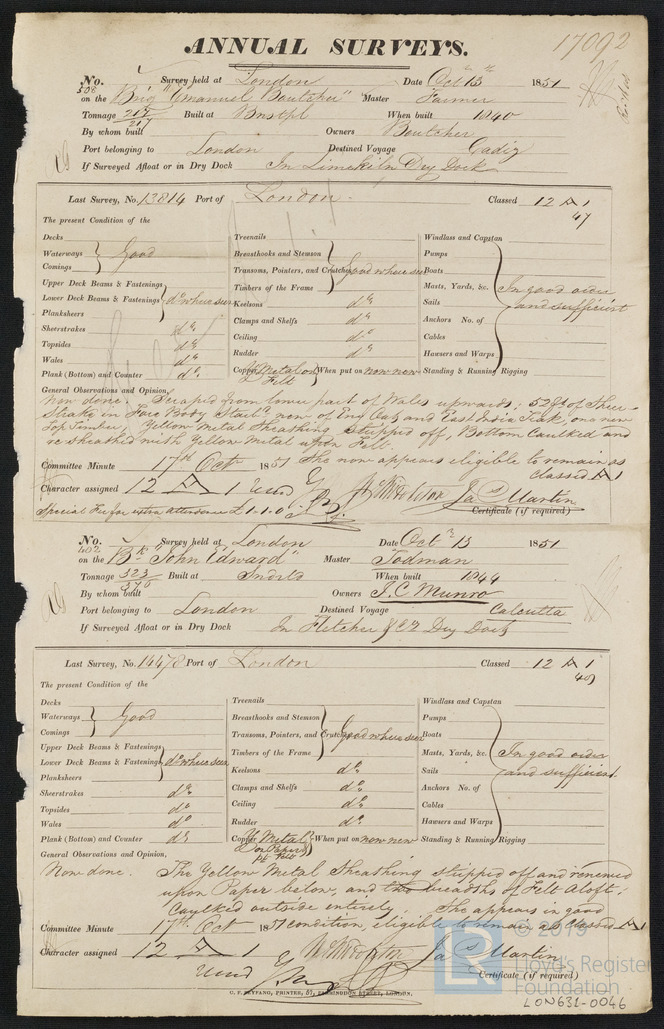 ANNUAL SURVEYS.
17092
No. 508 Survey held at London Date Octr 13th 1851
on the Brig "Emanuel Boutcher" Master Farmer
Tonnage 218/217 Built at Bnstpl When built 1840
By whom built Owners Boutcher
Port belonging to London Destined Voyage Cadiz
If Surveyed Afloat or in Dry Dock In Limekiln Dry Dock
Last Survey, No. 13814 Port of London. Classed 12 A 1
47
The present Condition of the
Decks Treenails Windlass and Capstan
Waterways } Good Breasthooks and Stemson Pumps
Comings Transoms, Pointers, and Crutches } Good where seen Boats
Upper Deck Beams & Fastenings Timbers of the Frame Masts, Yards, &c. In good order
Lower Deck Beams & Fastenings } do where seen Keelsons do Sails and sufficient
Planksheers Clamps and Shelfs do Anchors No. of
Sheerstrakes do Ceiling do Cables
Topsides do Rudder do Hawsers and Warps
Wales do Copper Y. Metal on Felt When put on now new Standing & Running Rigging
Plank (Bottom) and Counter do
General Observations and Opinion,
Now done. Scraped from lower part of Wales upwards, 52 ft of Sheer
Strake in Fore Body Starbd new of Eng Oak and East India Teak, one new
Top Timber, Yellow Metal Sheathing stripped off, Bottom Caulked and
re sheathed with Yellow Metal upon Felt.
Committee Minute 17th Oct 1851 She now appears eligible to remain as
classed A 1
Character assigned 12 A 1 Jas Martin
Special Fee for extra attendance £1.1.0 Certificate (if required)
No. 402 Survey held at London Date Octr 13 1851
on the Bk "John Edward" Master Todman
Tonnage 323/376 Built at When built 1844
By whom built Owners J. C. Munro
Port belonging to London Destined Voyage Calcutta
If Surveyed Afloat or in Dry Dock In Fletcher & Co Dry Dock
Last Survey, No. 14478 Port of London Classed 12 A 1
49
The present Condition of the
Decks Treenails Windlass and Capstan
Waterways } Good Breasthooks and Stemson Pumps
Comings Transoms, Pointers, and Crutches } Good where seen Boats
Upper Deck Beams & Fastenings Timbers of the Frame Masts, Yards, &c. In good order
Lower Deck Beams & Fastenings } do where seen Keelsons do Sails and sufficient
Planksheers Clamps and Shelfs do Anchors No. of
Sheerstrakes do Ceiling do Cables
Topsides do Rudder do Hawsers and Warps
Wales do Copper Y. Metal on Paper pt Felt When put on now new Standing & Running Rigging
Plank (Bottom) and Counter do
General Observations and Opinion,
Now done. The Yellow Metal Sheathing stripped off and renewed
upon Paper below, and two breadths of Felt Aloft,
Caulked outside entirely. She appears in good
Committee Minute 17th Oct 1851 condition, eligible to remain as classed A 1
Character assigned 12 A 1 Jas Martin
Certificate (if required)
C. F. SEYFANG, PRINTER, 57, FARRINGDON STREET, LONDON.
© 2019
Lloyd's Register
Foundation
LR
LON631-0046